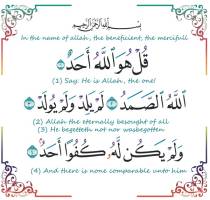 بسم الله الرحمن الرحيم
In the name of allah, the beneficient, the mercifull
قُلْ هُوَ اللَّهُ أَحَدٌ
(1) Say: He is Allah, the one!
اللَّهُ الصَّمَدُ لَمْ يَلِدْ وَلَمْ يُولَدْ
(2) Allah the eternally besought of all
(3) He begetteth not nor wasbegotten
وَلَمْ يَكُن لَّهُ كُفُوًا أَحَدٌ
(4) And there is none comparable unto him